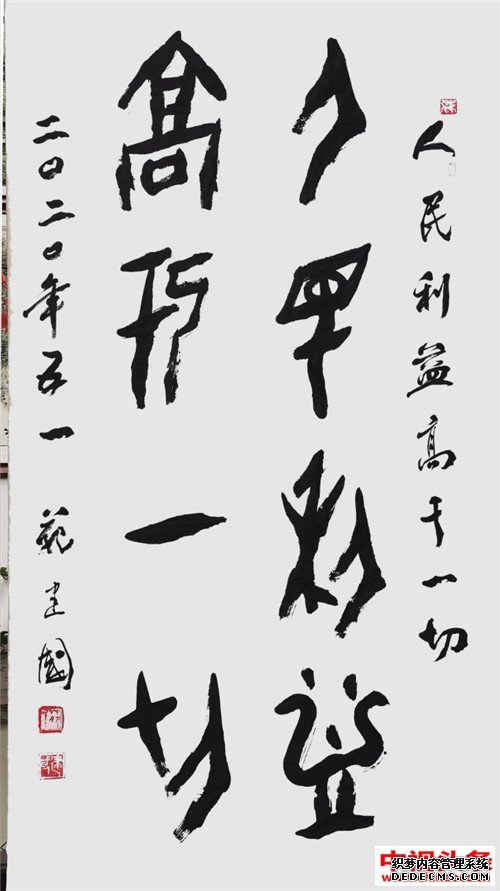 人民利益高于一切
人民利益
高于一切
二〇二〇年五一 建國
中视头条
织梦内容管理系统
DEDECMS.COM